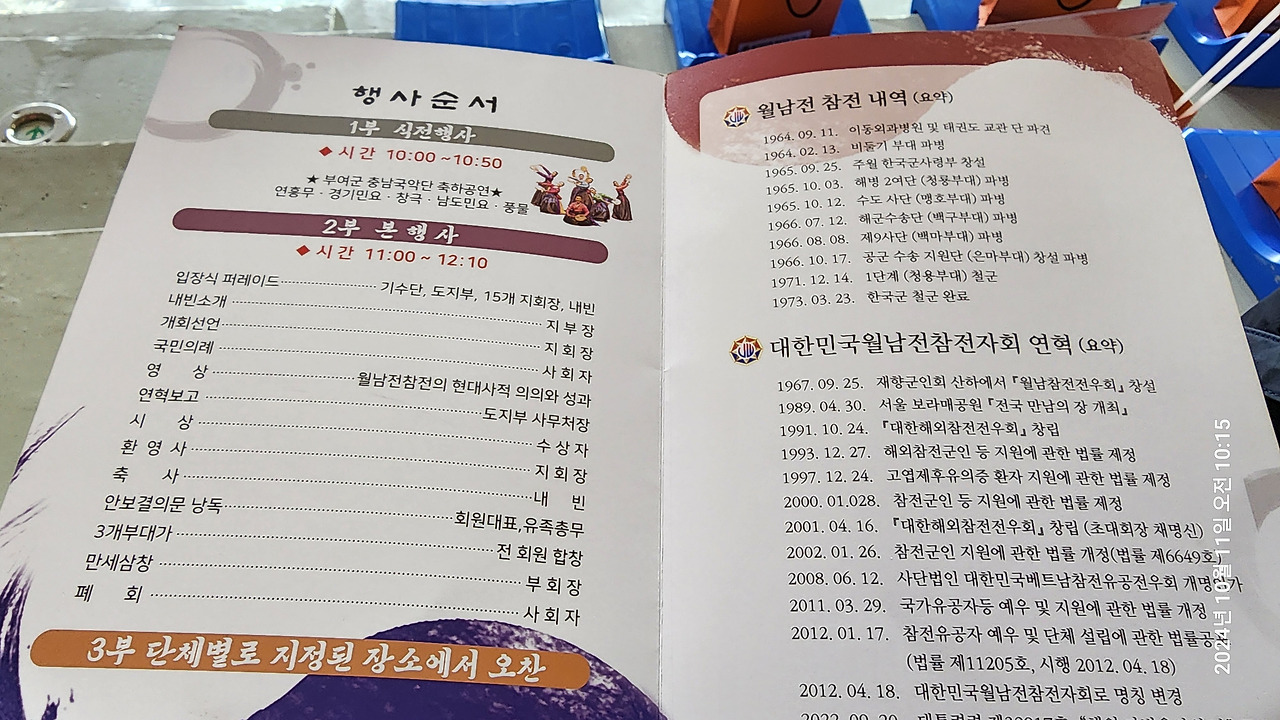 행사순서
1부 식전행사
◆시간 10:00 ~10:50
★ 부여군 충남국악단 축하공연★
연흥무 · 경기민요 · 창극 · 남도민요 · 풍물
2부 본행사
◆시간 11:00 ~ 12:10
입장식 퍼레이드 기수단, 도지부, 15개 지회장, 내빈
내빈소개 지부장
개회선언 지회장
국민의례 사회자
영 상 월남전참전의 현대사적 의의와 성과
연혁보고 도지부 사무처장
시 상 수상자
환영사 지회장
축 사 내 빈
안보결의문 낭독 회원대표,유족총무
3개부대가 전 회원 합창
만세삼창 부회장
폐 회 사회자
3부 단체별로 지정된 장소에서 오찬
월남전 참전 내역 (요약)
1964. 09. 11. 이동외과병원 및 태권도 교관 단 파견
1964. 02. 13. 비둘기 부대 파병
1965. 09. 25. 주월 한국군사령부 창설
1965. 10. 03. 해병 2여단 (청룡부대) 파병
1965. 10. 12. 수도 사단 (맹호부대) 파병
1966. 07. 12. 해군수송단 (백구부대) 파병
1966. 08. 08. 제9사단 (백마부대) 파병
1966. 10. 17. 공군 수송 지원단 (은마부대) 창설 파병
1971. 12. 14. 1단계 (청용부대) 철군
1973. 03. 23. 한국군 철군 완료
대한민국월남전참전자회 연혁 (요약)
1967. 09. 25. 재향군인회 산하에서 『월남참전전우회』 창설
1989. 04. 30. 서울 보라매공원 『전국 만남의 장 개최』
1991. 10. 24. 『대한해외참전전우회』 창립
1993. 12. 27. 해외참전군인 등 지원에 관한 법률 제정
1997. 12. 24. 고엽제후유의증 환자 지원에 관한 법률 제정
2000. 01.028. 참전군인 등 지원에 관한 법률 제정
2001. 04. 16. 『대한해외참전전우회』 창립 (초대회장 채명신)
2002. 01. 26. 참전군인 지원에 관한 법률 개정(법률 제6649호)
2008. 06. 12. 사단법인 대한민국베트남참전유공전우회 개명
2011. 03. 29. 국가유공자등 예우 및 지원에 관한 법률 개정
2012. 01. 17. 참전유공자 예우 및 단체 설립에 관한 법률공포
(법률 제11205호, 시행 2012. 04. 18)
2012. 04. 18. 대한민국월남전참전자회로 명칭 변경
2024년 10월 11일 오전 10:15